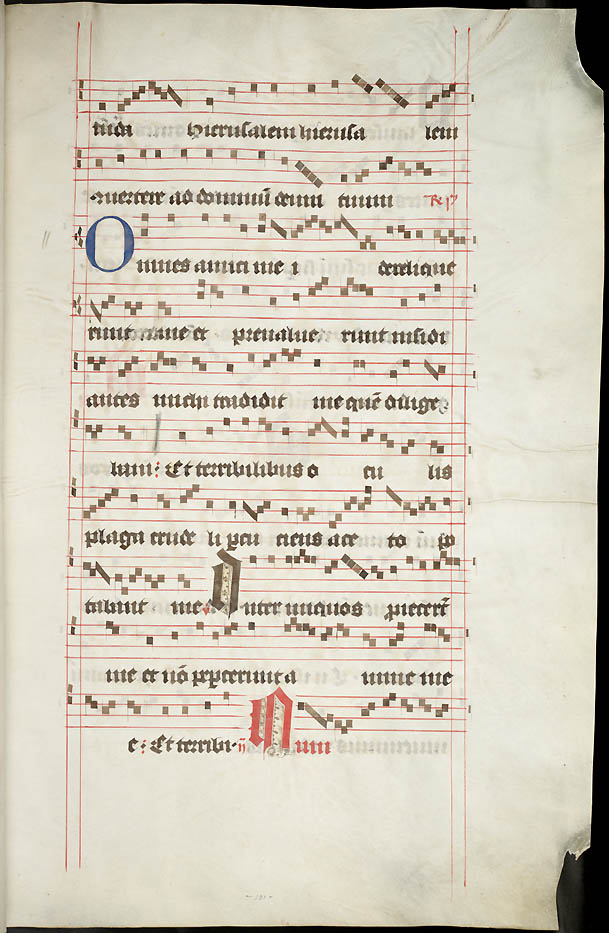 tudi Hierusalem hierusa lem
uertere ad dominū deum tuum Resp
Omnes amici me i derelique
runt me et preualue runt insidi
antes michi tradidit me quē dilige
bam: Et terribilibus o cu lis
plaga crude li ꝑcu ciens ace to
tabant me Inter iniquos proiecerūt
me et nō peꝑcerunt a nime me
e: Et terribi- num
- 191 -